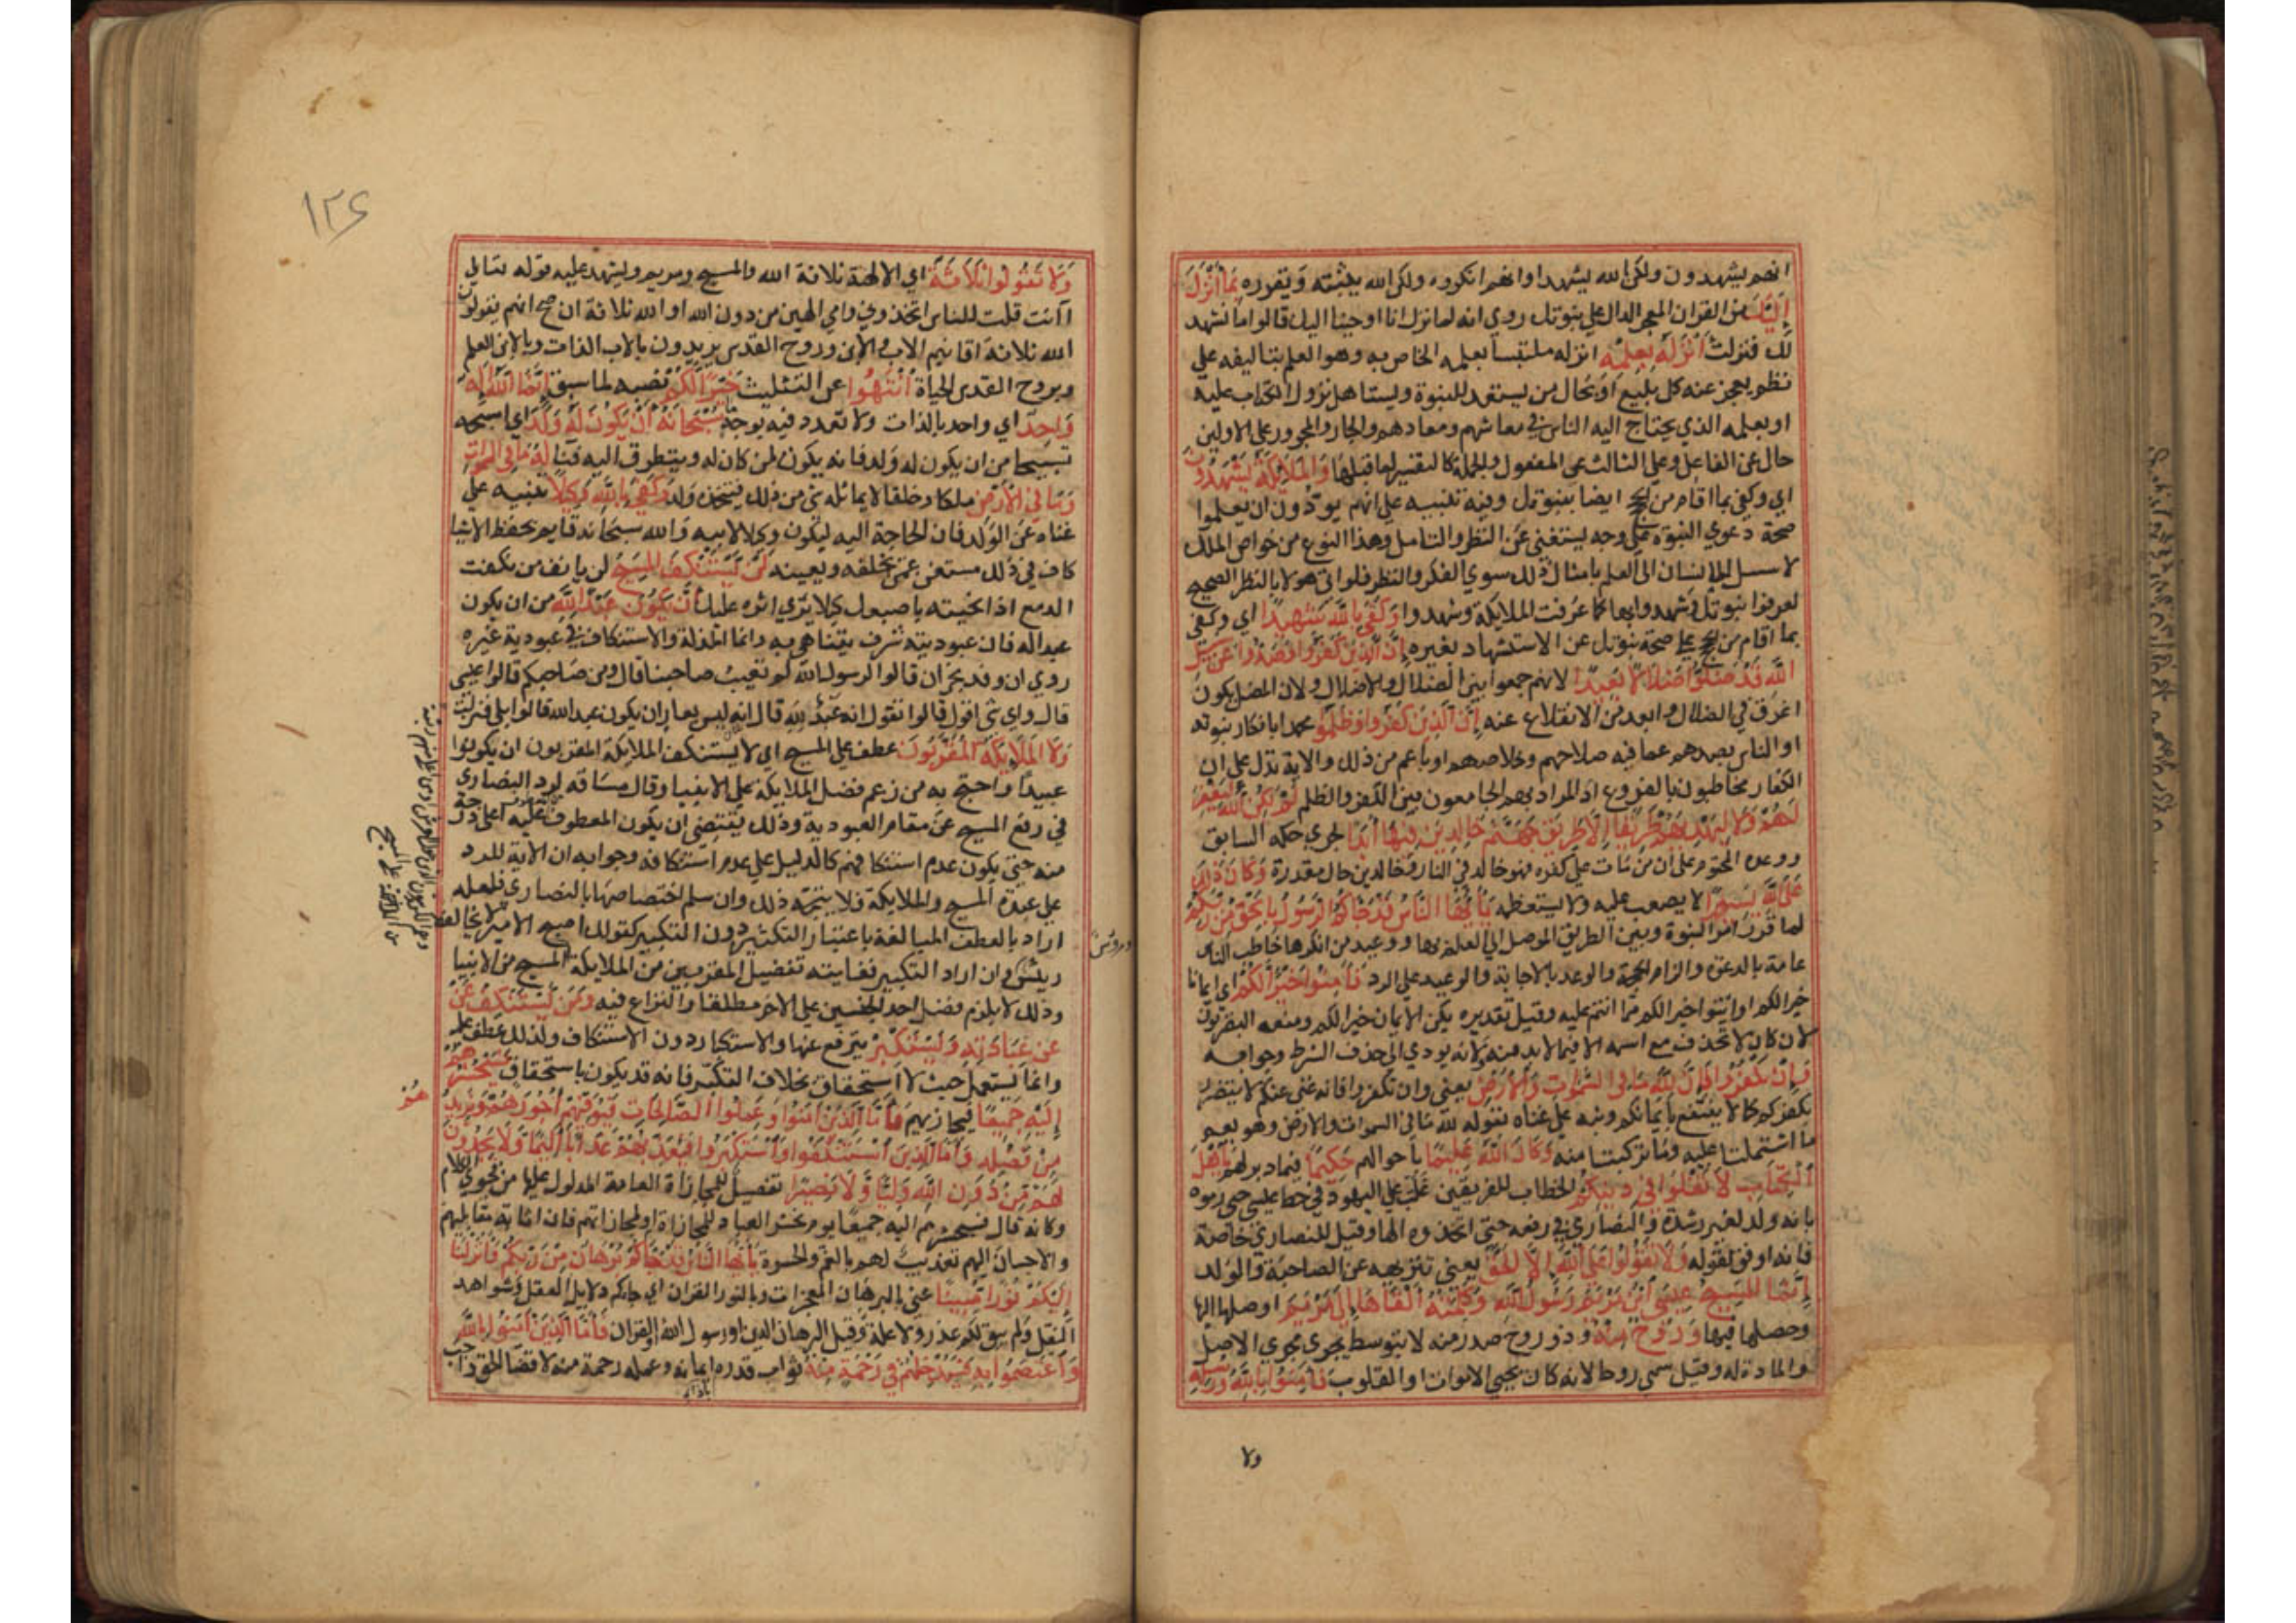 انهم يشهدون ولكن الله يشهد او انهم انكروه ولكن الله يثبته ويقرره بِمَا أَنْزَلَ
إِلَيْكَ من القران المعجز الدال على نبوتك روي انه لما نزل انا اوحينا اليك قالوا ما نشهد
لك فنزلت أَنْزَلَهُ بِعِلْمِهِ انزله ملتبسا بعلمه الخاص به وهو العلم بتاليفه علي
نظم يعجز عنه كل بليغ او بحال من يستعد للنبوة ويستاهل نزول الكتاب عليه
او بعلمه الذي يحتاج اليه الناس في معاشهم ومعادهم والجار والمجرور علي الاولين
حال عن الفاعل وعلي الثالث عن المفعول والجملة كالتفسير لما قبلها وَالْمَلَايِكَةُ يَشْهَدُونَ
اي وكفي بما اقام من الحجج ايضا بنبوتك وفيه تنبيه علي انهم يودون ان يعلموا
صحة دعوي النبوة علي وجه يستغني عن النظر والتامل وهذا النوع من خواص الملك
لا سبيل للانسان الي العلم بامثال ذلك سوي الفكر والنظر فلو اتي هولا بالنظر الصحيح
لعرفوا نبوتك وشهدوا بها كما عرفت الملايكة وشهدوا وَكَفَي بِاللَّهِ شَهِيدًا اي وكفي
بما اقام من الحجج علي صحة نبوتك عن الاستشهاد بغيره إِنَّ الَّذِينَ كَفَرُوا وَصَدُّوا عَنْ سَبِيلِ
اللَّهِ قَدْ ضَلُّوا ضَلَالًا بَعِيدًا لانهم جمعوا بين الضلال والاضلال ولان المضل يكون
اغرق في الضلال وابعد من الانقلاع عنه إِنَّ الَّذِينَ كَفَرُوا وَظَلَمُوا محمدا بانكار نبوته
او الناس بصدهم عما فيه صلاحهم وخلاصهم او باعم من ذلك والاية تدل علي ان
الكفار مخاطبون بالفروع اذ المراد بهم الجامعون بين الكفر والظلم لَمْ يَكُنِ اللَّهُ لِيَغْفِرَ
لَهُمْ وَلَا لِيَهْدِيَهُمْ طَرِيقًا إِلَّا طَرِيقَ جَهَنَّمَ خَالِدِينَ فِيهَا أَبَدًا لجري حكمه السابق
ووعده المحتوم علي ان من مات علي كفره فهو خالد في النار وخالدين حال مقدرة وَكَانَ ذَلِكَ
عَلَى اللَّهِ يَسِيرًا لا يصعب عليه ولا يستعظمه يَاأَيُّهَا النَّاسُ قَدْ جَاكُمُ الرَّسُولُ بِالْحَقِّ مِنْ رَبِّكُمْ
لما قرر امر النبوة وبين الطريق الموصل الي العلم بها ووعيد من انكرها خاطب الناس
عامة بالدعوة والزام الحجة والوعد بالاجابة والوعيد علي الرد فَآمِنُوا خَيْرًا لَكُمْ اي ايمانا
خيرا لكم او ايتوا خيرا لكم مما انتم عليه وقيل تقديره يكن الايمان خيرا لكم ومنعه البصريون
لان كان لا تحذف مع اسمه الا فيما لا بد منه ولانه يودي الي حذف الشرط وجوابه
فَإِنْ تَكْفُرُوا فَإِنَّ لِلَّهِ مَا فِي السَّمَوَاتِ وَالْأَرْضِ يعني وان تكفروا فانه غني عنكم لا يتضرر
بكفركم كما لا ينتفع بايمانكم ونبه علي غناه بقوله لله ما في السموات والارض وهو يعم
ما اشتملتا عليه وما تركبتا منه وَكَانَ اللَّهُ عَلِيمًا باحوالهم حَكِيمًا فيما دبر لهم يَاأَهْلَ
الْكِتَابِ لَا تَغْلُوا فِي دِينِكُمْ الخطاب للفريقين غلت اليهود في حط عيسي حتي رموه
بانه ولد لغير رشدة والنصاري في رفعه حتي اتخذوه الها وقيل للنصاري خاصة
فانه اوفق لقوله وَلَا تَقُولُوا عَلَى اللَّهِ إِلَّا الْحَقَّ يعني تنزيهه عن الصاحبة والولد
إِنَّمَا الْمَسِيحُ عِيسَي ابْنُ مَرْيَمَ رَسُولُ اللَّهِ وَكَلِمَتُهُ أَلْقَاهَا إِلَي مَرْيَمَ اوصلها اليها
وحصلها فيها وَرُوحٌ مِنْهُ وذو روح صدر منه لا بتوسط ما يجري مجري الاصل
والمادة له وقيل سمي روحا لانه كان يحيي الاموات او القلوب فَآمِنُوا بِاللَّهِ وَرُسُلِهِ
ولا
١٢٤
وَلَا تَقُولُوا ثَلَاثَةٌ اي الالهة ثلاثة الله والمسيح ومريم ويشهد عليه قوله تعالي
اانت قلت للناس اتخذوني وامي الهين من دون الله او الله ثلاثة ان صح انهم يقولون
الله ثلاثة اقانيم الاب والابن وروح القدس يريدون بالاب الذات وبالابن العلم
وبروح القدس الحياة انْتَهُوا عن التثليث خَيْرًا لَكُمْ نصبه لما سبق إِنَّمَا اللَّهُ إِلَهٌ
وَاحِدٌ اي واحد بالذات ولا تعدد فيه بوجه سُبْحَانَهُ أَنْ يَكُونَ لَهُ وَلَدٌ اي اسبحه
تسبيحا من ان يكون له ولد فانه يكون لمن كان له ويتطرق اليه فنا لَهُ مَا فِي السَّمَوَاتِ
وَمَا فِي الْأَرْضِ ملكا وخلقا لا يماثله شي من ذلك فيتخذه ولدا وَكَفَي بِاللَّهِ وَكِيلًا تنبيه علي
غناه عن الولد فان الحاجة اليه ليكون وكيلا لابيه والله سبحانه قايم بحفظ الاشيا
كاف في ذلك مستغن عمن يخلفه ويعينه لَنْ يَسْتَنْكِفَ الْمَسِيحُ لن يانف من نكفت
الدمع اذا نحيته باصبعك كيلا يري اثره عليك أَنْ يَكُونَ عَبْدًا لِلَّهِ من ان يكون
عبدا له فان عبوديته شرف يتباهي به وانما المذلة والاستنكاف في عبودية غيره
روي ان وفد نجران قالوا لرسول الله لم تعيب صاحبنا قال ومن صاحبكم قالوا عيسي
قال واي شي اقول قالوا تقول انه عبد لله قال انه ليس بعار ان يكون عبدا لله قالوا بلي فنزلت
وَلَا الْمَلَايِكَةُ الْمُقَرَّبُونَ عطف علي المسيح اي لا يستنكف الملايكة المقربون ان يكونوا
عبيدا واحتج به من زعم فضل الملايكة علي الانبيا وقال مساقه لرد النصاري
في رفع المسيح عن مقام العبودية وذلك يقتضي ان يكون المعطوف عليه اعلي درجة
منه حتي يكون عدم استنكافهم كالدليل علي عدم استنكافه وجوابه ان الاية للرد
علي عبدة المسيح والملايكة فلا يتجه ذلك وان سلم اختصاصها بالنصاري فلعله
اراد بالعطف المبالغة باعتبار التكثير دون التكبير كقولك اصبح الامير لا يخالفه
ريئس وان اراد التكبير فغايته تفضيل المقربين من الملايكة المسيح من الانبيا
وذلك لا يلزم فضل احد الجنسين علي الاخر مطلقا والنزاع فيه وَمَنْ يَسْتَنْكِفْ عَنْ
عَنْ عِبَادَتِهِ وَيَسْتَكْبِرْ يترفع عنها والاستكبار دون الاستنكاف ولذلك عطف عليه
وانما يستعمل حيث لا استحقاق بخلاف التكبر فانه قد يكون باستحقاق فَسَيَحْشُرُهُمْ
إِلَيْهِ جَمِيعًا فيجازيهم فَأَمَّا الَّذِينَ آمَنُوا وَعَمِلُوا الصَّالِحَاتِ فَيُوَفِّيهِمْ أُجُورَهُمْ وَيَزِيدُهُمْ
مِنْ فَضْلِهِ وَأَمَّا الَّذِينَ اسْتَنْكَفُوا وَاسْتَكْبَرُوا فَيُعَذِّبُهُمْ عَذَابًا أَلِيمًا وَلَا يَجِدُونَ
لَهُمْ مِنْ دُونِ اللَّهِ وَلِيًّا وَلَا نَصِيرًا تفصيل للمجازاة العامة المدلول عليها من فحوي الكلام
وكانه قال فسيحشرهم اليه جميعا يوم يحشر العباد للمجازاة او لمجازاتهم فان اثابة مقابلهم
والاحسان اليهم تعذيب لهم بالغم والحسرة يَاأَيُّهَا النَّاسُ قَدْ جَاكُمْ بُرْهَانٌ مِنْ رَبِّكُمْ وَأَنْزَلْنَا
إِلَيْكُمْ نُورًا مُبِينًا عني بالبرهان المعجزات وبالنور القران اي جاكم دلايل العقل وشواهد
النقل ولم يبق لكم عذر ولا علة وقيل البرهان الدين او رسول الله او القران فَأَمَّا الَّذِينَ آمَنُوا بِاللَّهِ
وَاعْتَصَمُوا بِهِ فَسَيُدْخِلُهُمْ فِي رَحْمَةٍ مِنْهُ ثواب قدره بازاء ايمانه وعمله رحمة منه لا قضا لحق واجب